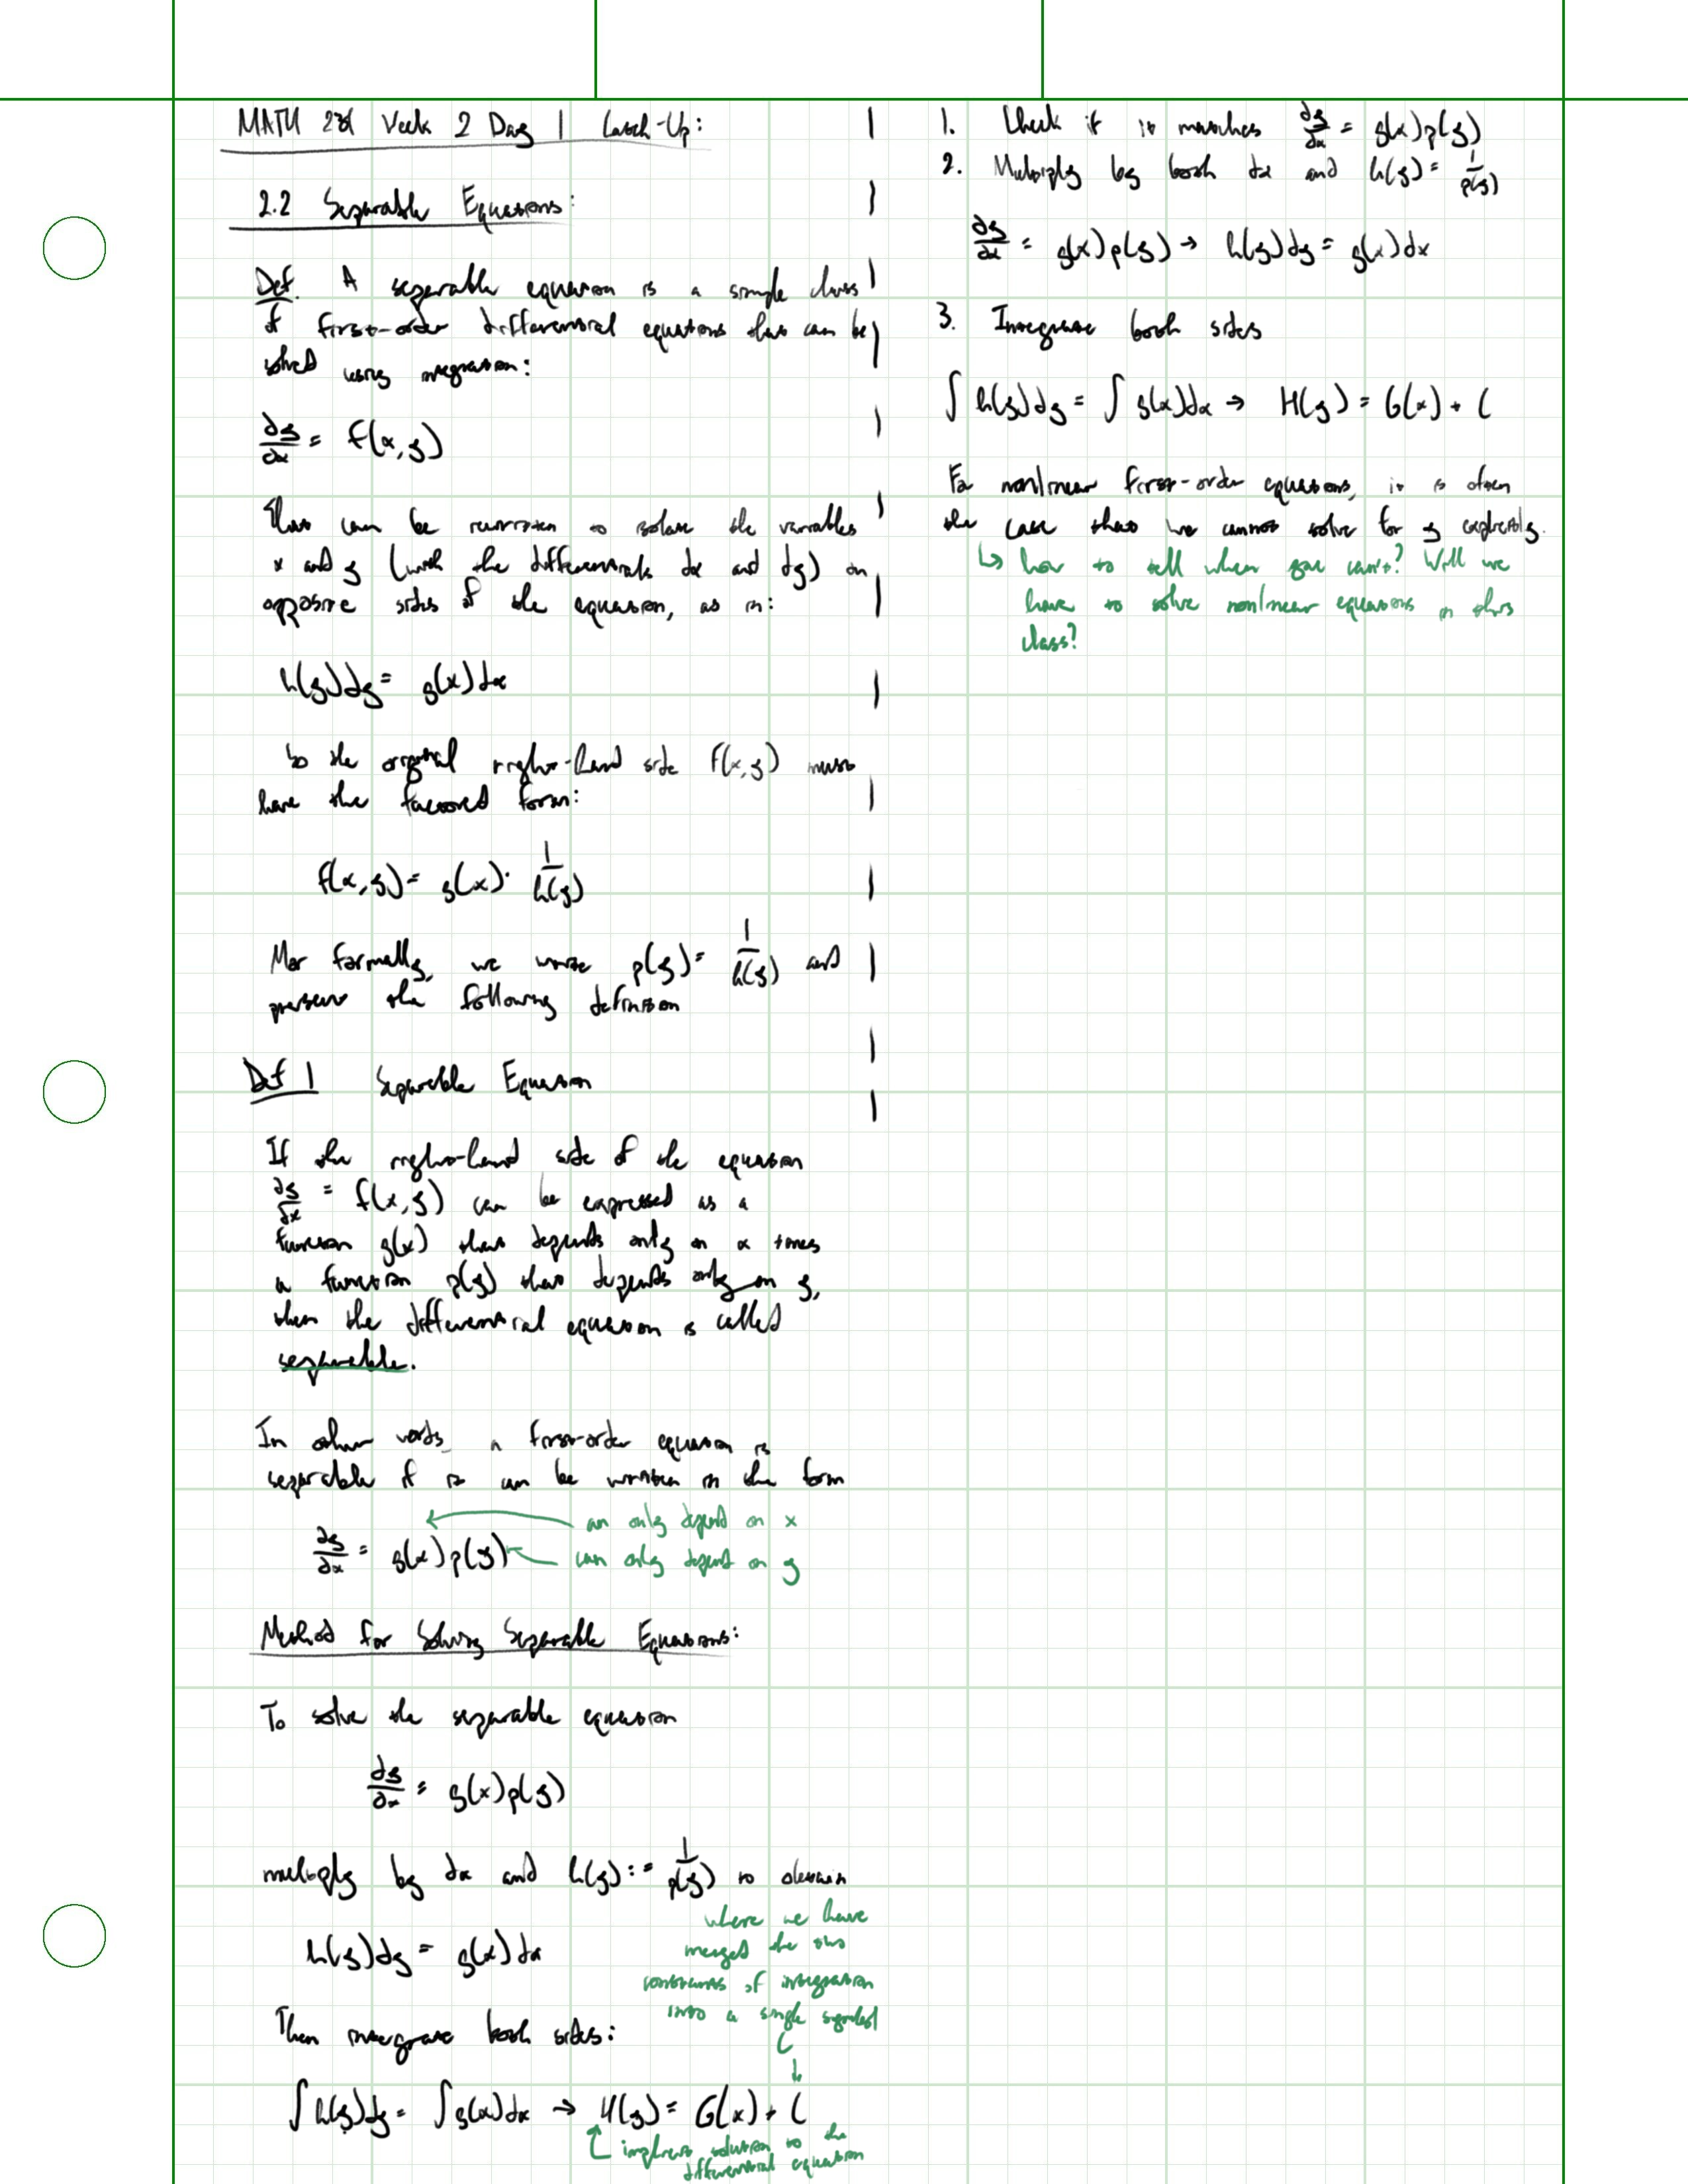 MATH 231 Week 2 Day 1 Catch-Up:
2.2 Separable Equations:
Def. A separable equation is a simple class
of first-order differential equations that can be
solved using integration:
dy/dx = f(x,y)
That can be rewritten to isolate the variables
x and y (with the differentials dx and dy) on
opposite sides of the equation, as in:
h(y)dy = g(x)dx
So the original right-hand side f(x,y) must
have the factored form:
f(x,y) = g(x) · 1/h(y)
More formally, we write p(y) = 1/h(y) and
present the following definition
Def 1 Separable Equation
If the right-hand side of the equation
dy/dx = f(x,y) can be expressed as a
function g(x) that depends only on x times
a function p(y) that depends only on y,
then the differential equation is called
separable.
In other words, a first-order equation is
separable if it can be written in the form
can only depend on x
dy/dx = g(x)p(y) can only depend on y
Method for Solving Separable Equations:
To solve the separable equation
dy/dx = g(x)p(y)
multiply by dx and h(y) := 1/p(y) to obtain
h(y)dy = g(x)dx
where we have
merged the two
constants of integration
into a single symbol
C
Then integrate both sides:
∫h(y)dy = ∫g(x)dx → H(y) = G(x) + C
implicit solution to the
differential equation
1. Check if it matches dy/dx = g(x)p(y)
2. Multiply by both dx and h(y) = 1/p(y)
dy/dx = g(x)p(y) → h(y)dy = g(x)dx
3. Integrate both sides
∫h(y)dy = ∫g(x)dx → H(y) = G(x) + C
For nonlinear first-order equations, it is often
the case that we cannot solve for y explicitly.
↳ how to tell when you can't? Will we
have to solve nonlinear equations in this
class?